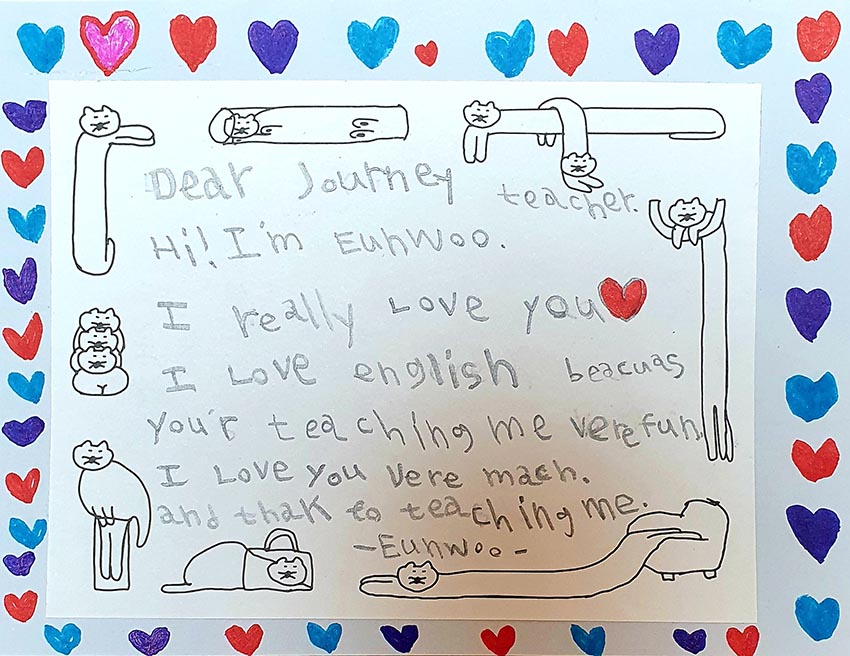 Dear Journey teacher.
Hi! I'm EunWoo.
I really Love you
I Love english beacuas
you'r teaching me vere fun.
I Love you vere mach.
and thak to teaching me.
-Eunwoo-